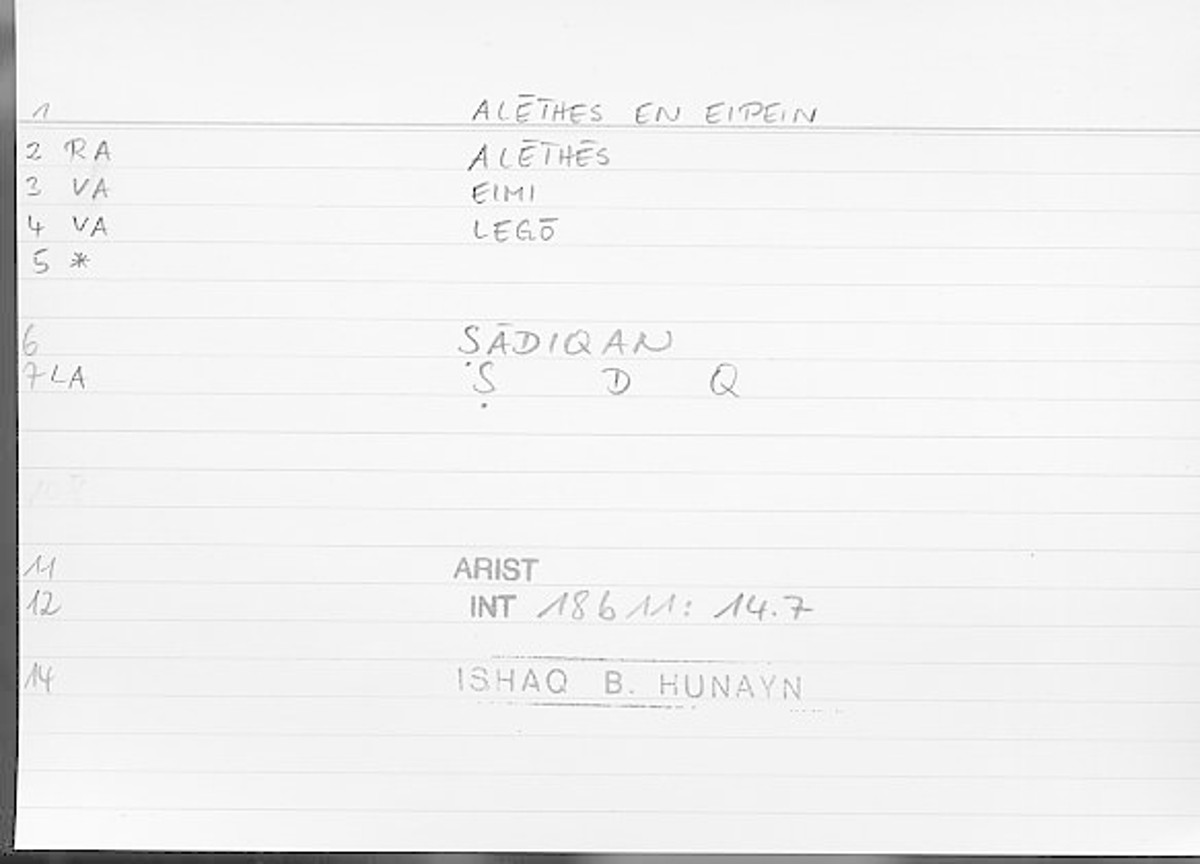 1 ALĒTHES EN EIPEIN
2 RA ALĒTHĒS
3 VA EIMI
4 VA LEGŌ
5 *
6 ṢĀDIQAN
7 LA Ṣ D Q
11 ARIST
12 INT 18b11: 14.7
14 ISHAQ B. HUNAYN